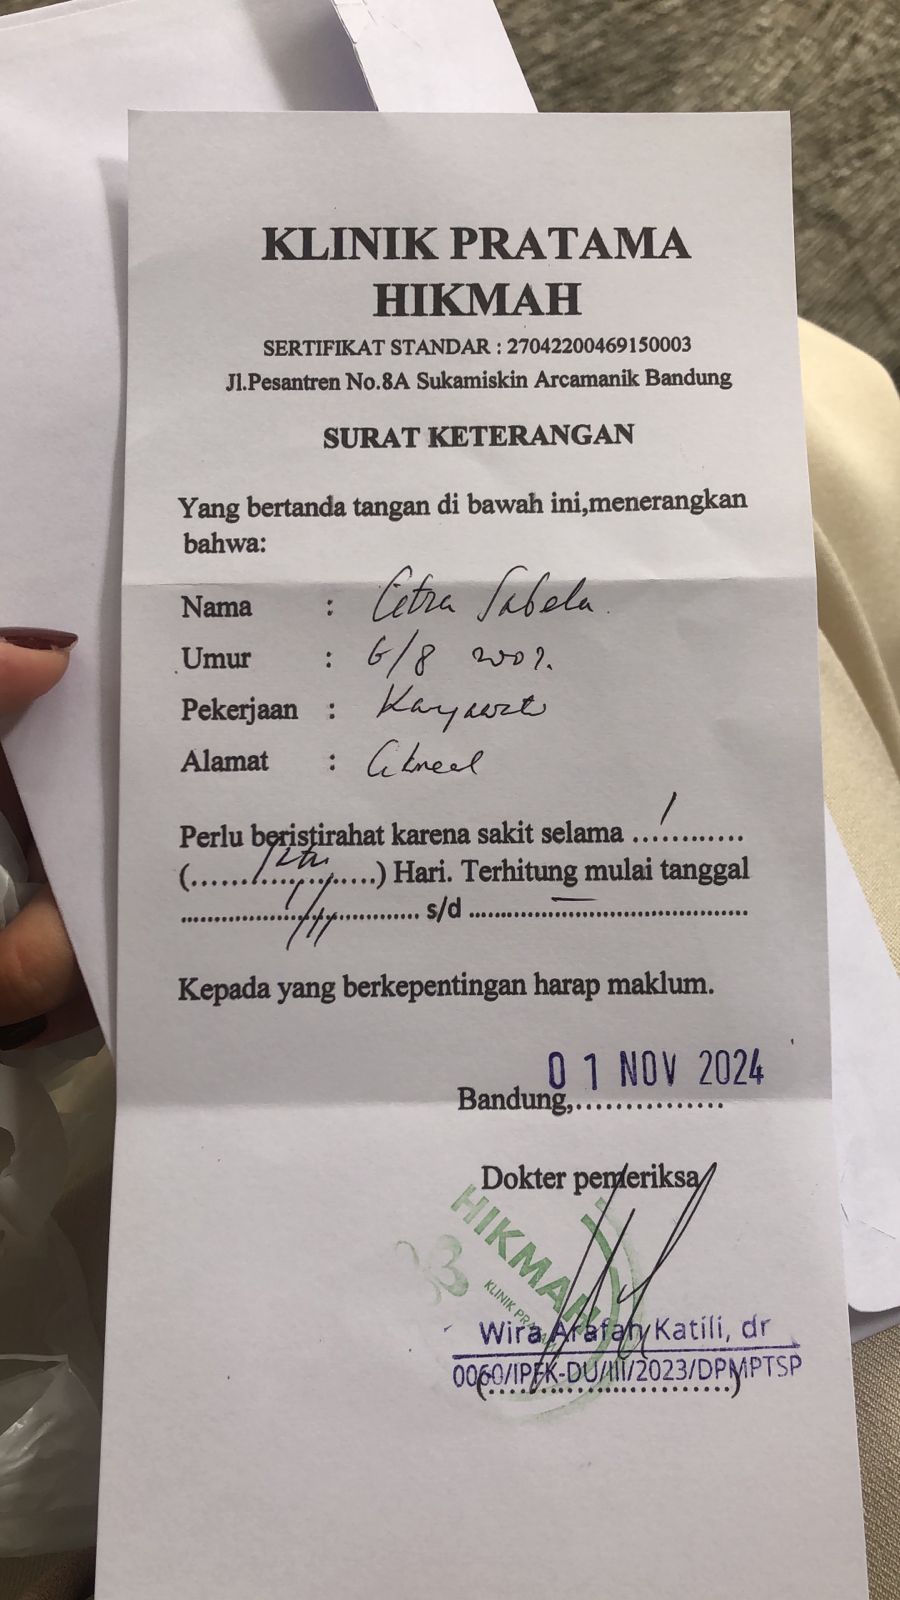 KLINIK PRATAMA
HIKMAH
SERTIFIKAT STANDAR : 27042200469150003
Jl.Pesantren No.8A Sukamiskin Arcamanik Bandung
SURAT KETERANGAN
Yang bertanda tangan di bawah ini,menerangkan
bahwa:
Nama : Citra Sabela
Umur : 6/8
Pekerjaan :
Alamat :
Perlu beristirahat karena sakit selama ...1.........
(....................) Hari. Terhitung mulai tanggal
.................................... s/d ..........................................
Kepada yang berkepentingan harap maklum.
01 NOV 2024
Bandung,................
Dokter pemeriksa
HIKMAH
KLINIK
Wira Arafah Katili, dr
0060/IPFK-DU/III/2023/DPMPTSP
(............................)